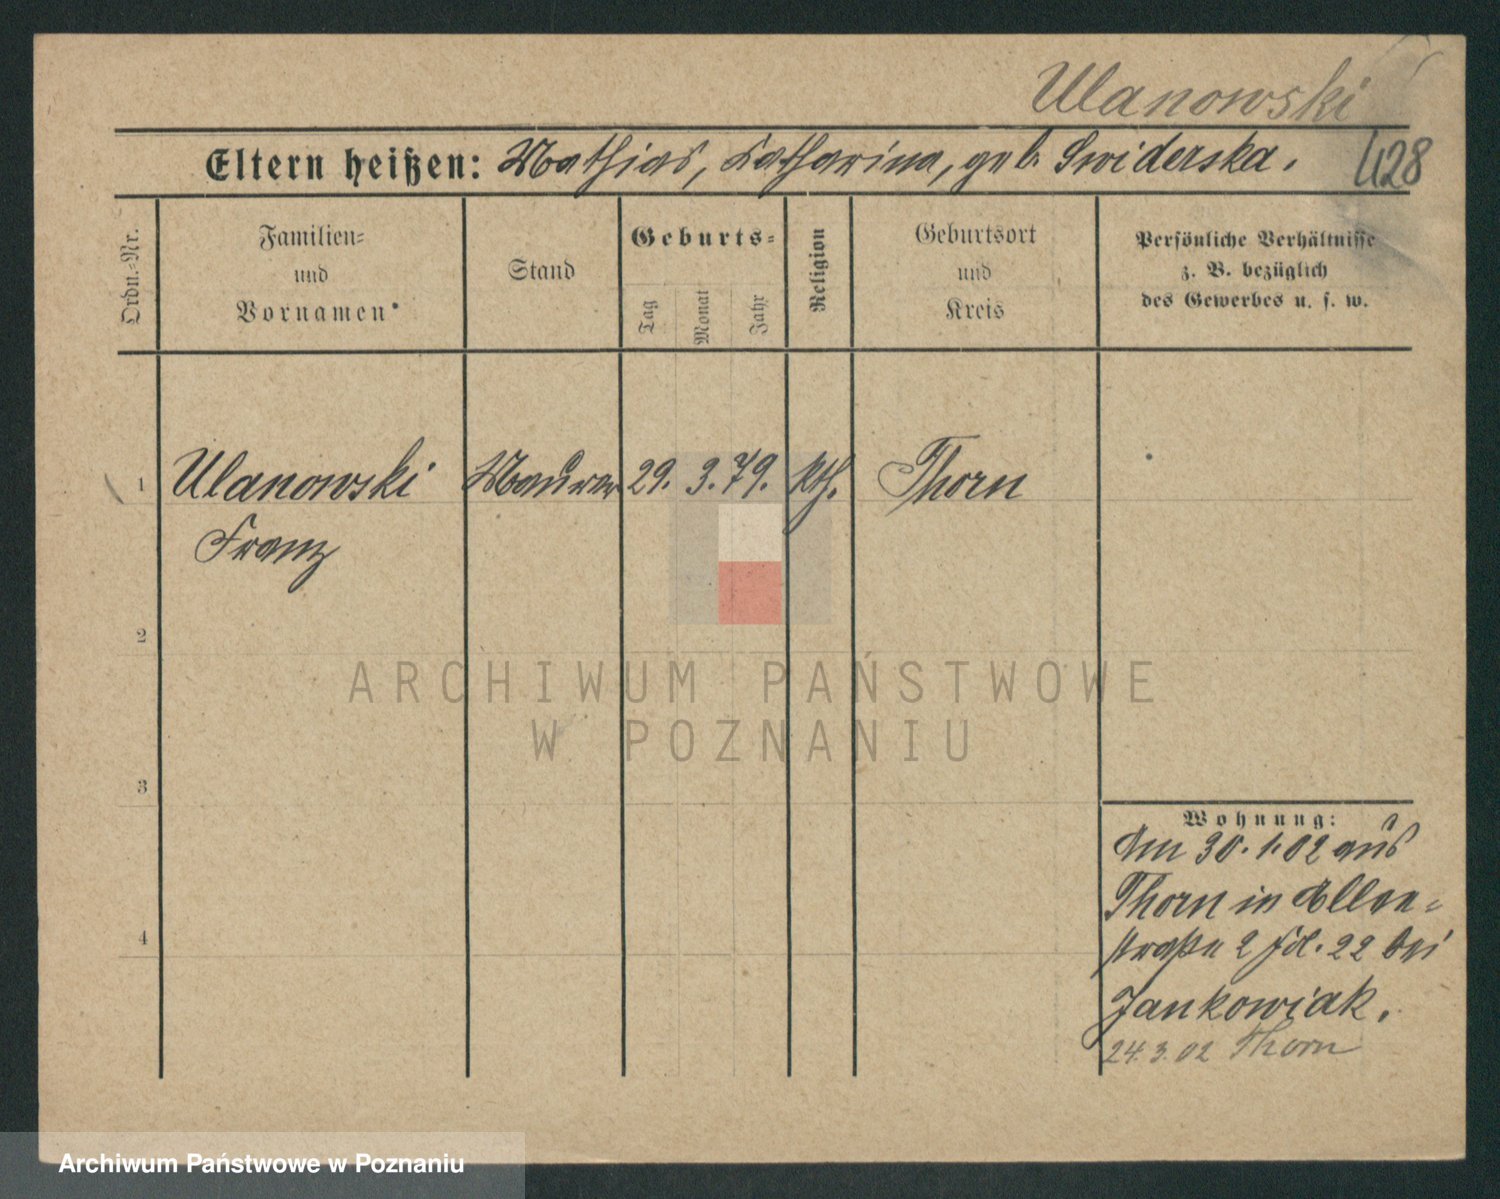 Ulanowski
Eltern heißen: Mathias, Katharina, geb. Swiderska.
428
Ordn.-Nr.
Familien-
und
Vornamen
Stand
Geburts-
Tag
Monat
Jahr
Religion
Geburtsort
und
Kreis
Persönliche Verhältnisse
z. B. bezüglich
des Gewerbes u. s. w.
1 Ulanowski Maurer 29. 3. 79. kth. Thorn
Franz
2
3
4
ARCHIWUM PAŃSTWOWE
W POZNANIU
Wohnung:
Am 30. 1. 02 aus
Thorn in
straße 2 22 bei
Jankowiak.
24. 3. 02 Thorn
Archiwum Państwowe w Poznaniu